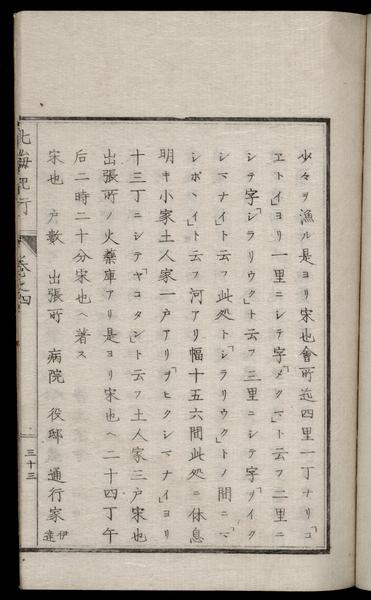 少々ヲ漁ル是ヨリ宋也會所迄四里一丁ナリ「コ
ヱトイ」ヨリ一里ニシテ字「メクマ」ト云フ二里ニ
シテ字「シラリウク」ト云フ三里ニシテ字「ヲイク
シマナイ」ト云フ此処ト「シラリウク」トノ間ニ「マ
シボヽイ」ト云フ河アリ幅十五六間此処ニ休息
明キ小家土人家一戸アリ「ヲヒクシマナイ」ヨリ
十三丁ニシテ「ヤコタン」ト云フ土人家三戸宋也
出張所ノ火藥庫アリ是ヨリ宋也ヘ二十四丁午
后二時二十分宋也ヘ著ス
宋也 戸數 出張所 病院 役邸 通行家 伊達
北海紀行 巻之四 三十三